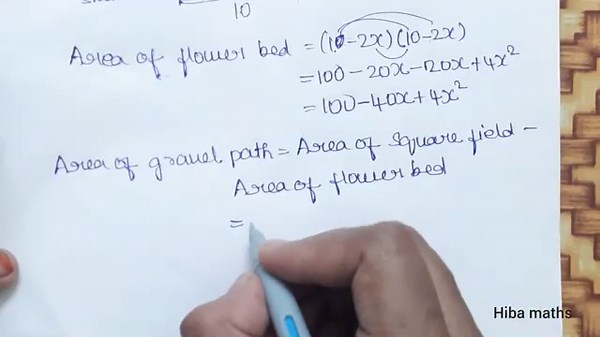 10
Area of flower bed = (10-2x)(10-2x)
= 100 - 20x - 20x + 4x²
= 100 - 40x + 4x²
Area of gravel path = Area of square field -
Area of flower bed
=
Hiba maths